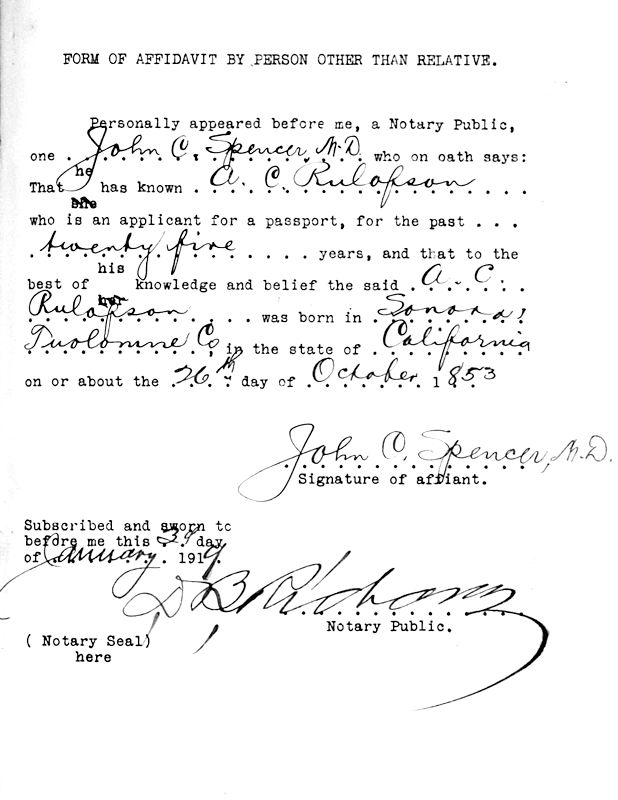 FORM OF AFFIDAVIT BY PERSON OTHER THAN RELATIVE.
Personally appeared before me, a Notary Public,
one John C. Spencer, M.D. who on oath says:
That he has known A. C. Rulofson
who is an applicant for a passport, for the past . . .
twenty five . . . . . years, and that to the
his
best of knowledge and belief the said A. C.
Rulofson . . . was born in Sonora,
Tuolomne Co in the state of California
on or about the 26th day of October 1853
John C. Spencer, M.D.
Signature of affiant.
Subscribed and sworn to
before me this day
of January. 1919.
D B Richards
Notary Public.
( Notary Seal)
here